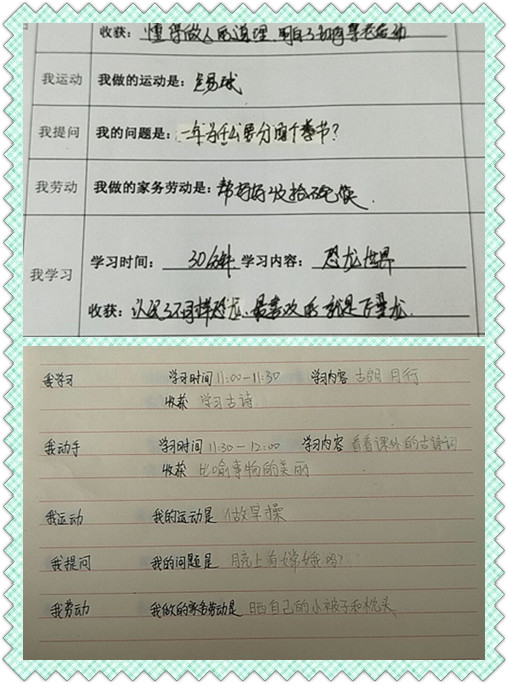 收获：懂得做人的道理，明白了如何尊老
我运动 我做的运动是：踢球
我提问 我的问题是：一年为什么要分四个季节？
我劳动 我做的家务劳动是：帮妈妈收拾碗筷.
我学习 学习时间：30分钟 学习内容：恐龙世界
收获：认识了不同样恐龙、最喜欢的就是飞翼龙.
我学习 学习时间 11:00-11:30 学习内容 古朗月行
收获 学习古诗
我动手 学习时间 11:30-12:00 学习内容 看看课外的古诗词
收获 比喻事物的美丽
我运动 我的运动是 做早操
我提问 我的问题是 月亮上有嫦娥吗?
我劳动 我做的家务劳动是 晒自己的小被子和枕头